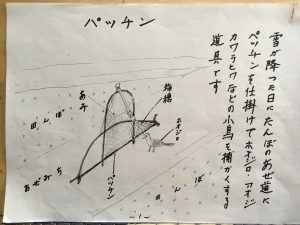 パッチン
雪が降った日にたんぼのあぜ道に
ペッチンを仕掛けてホオジロ・アオジ
カワラヒワなどの小鳥を捕かくする
道具です
稲穂
あみ
ホオジロ
田んぼ
あぜみち
パッチン
田んぼ
-1-